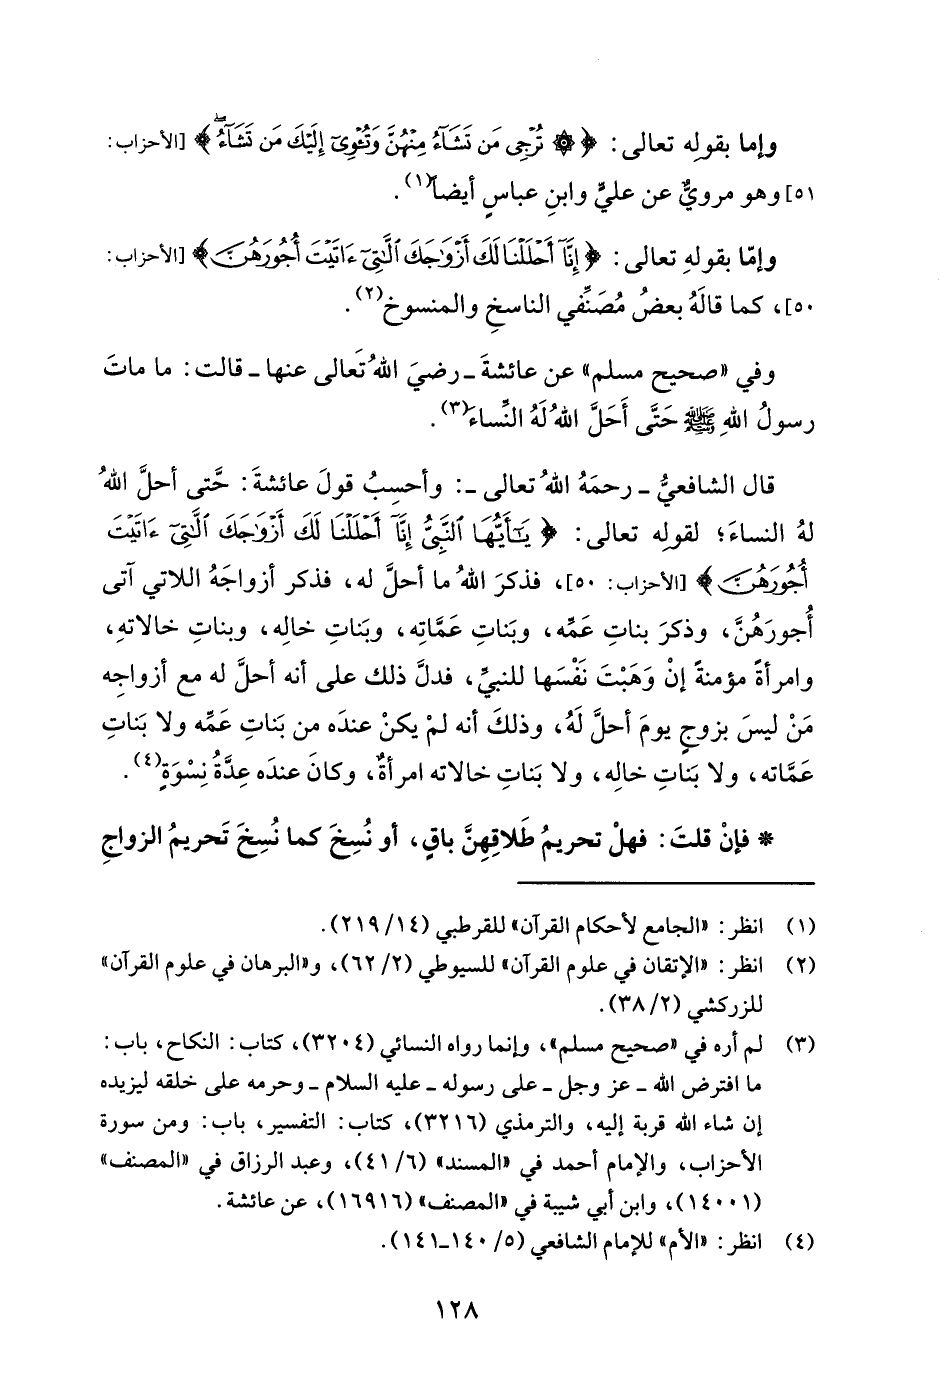 وإما بقولِه تعالى: ﴿ ۞ تُرْجِى مَن تَشَآءُ مِنْهُنَّ وَتُـْٔوِىٓ إِلَيْكَ مَن تَشَآءُ ۖ﴾ [الأحزاب:
٥١] وهو مرويٌّ عن عليٍّ وابنِ عباسٍ أيضاً(١).
وإمّا بقولهِ تعالى: ﴿إِنَّآ أَحْلَلْنَا لَكَ أَزْوَٰجَكَ ٱلَّٰتِىٓ ءَاتَيْتَ أُجُورَهُنَّ﴾ [الأحزاب:
٥٠]، كما قالَهُ بعضُ مُصَنِّفي الناسخِ والمنسوخ(٢).
وفي «صحيح مسلم» عن عائشةَ ـ رضيَ اللهُ تَعالى عنها ـ قالت: ما ماتَ
رسولُ اللهِ ﷺ حَتَّى أَحَلَّ اللهُ لَهُ النِّساءَ(٣).
قال الشافعيُّ ـ رحمَهُ اللهُ تعالى ـ: وأحسِبُ قولَ عائشةَ: حَّتى أحلَّ اللهُ
لهُ النساءَ؛ لقولِه تعالى: ﴿ يَٰٓأَيُّهَا ٱلنَّبِىُّ إِنَّآ أَحْلَلْنَا لَكَ أَزْوَٰجَكَ ٱلَّٰتِىٓ ءَاتَيْتَ
أُجُورَهُنَّ ﴾ [الأحزاب: ٥٠]، فذكرَ اللهُ ما أحلَّ له، فذكر أزواجَهُ اللاتي آتى
أُجورَهُنَّ، وذكرَ بناتِ عمِّه، وبَناتِ عَمَّاتِه، وبَناتِ خالِه، وبناتِ خالاتهِ،
وامرأةً مؤمنةً إنْ وَهَبَتْ نَفْسَها للنبيِّ، فدلَّ ذلك على أنه أحلَّ له مع أزواجِه
مَنْ ليسَ بزوجٍ يومَ أحلَّ لَهُ، وذلكَ أنه لمْ يكنْ عندَه من بَناتِ عَمِّه ولا بَناتِ
عَمَّاته، ولا بَناتِ خالِه، ولا بَناتِ خالاته امرأةٌ، وكانَ عندَه عِدَّةُ نِسْوَةٍ(٤).
* فإنْ قلتَ: فهلْ تحريمُ طَلاقِهِنَّ باقٍ، أو نُسِخَ كما نُسِخَ تَحريمُ الزواجِ
(١) انظر: «الجامع لأحكام القرآن» للقرطبي (١٤/ ٢١٩).
(٢) انظر: «الإتقان في علوم القرآن» للسيوطي (٢/ ٦٢)، و«البرهان في علوم القرآن»
للزركشي (٢/ ٣٨).
(٣) لم أره في «صحيح مسلم»، وإنما رواه النسائي (٣٢٠٤)، كتاب: النكاح، باب:
ما افترض الله ـ عز وجل ـ على رسوله ـ عليه السلام ـ وحرمه على خلقه ليزيده
إن شاء الله قربة إليه، والترمذي (٣٢١٦)، كتاب: التفسير، باب: ومن سورة
الأحزاب، والإمام أحمد في «المسند» (٦/ ٤١)، وعبد الرزاق في «المصنف»
(١٤٠٠١)، وابن أبي شيبة في «المصنف» (١٦٩١٦)، عن عائشة.
(٤) انظر: «الأم» للإمام الشافعي (٥/ ١٤٠ـ١٤١).
١٢٨